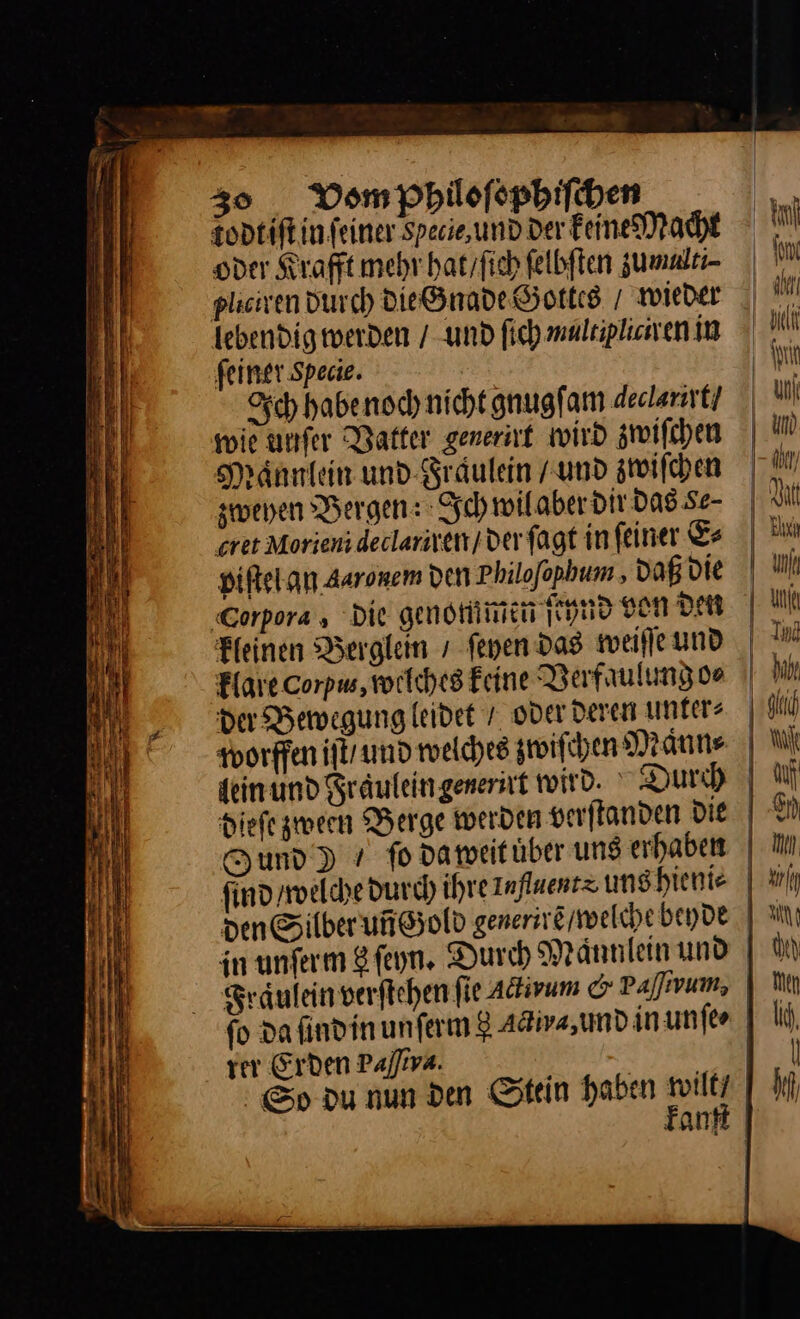 30 Vom Philoſophiſchen
todt iſt in ſeiner Specie, und der keine Macht
oder Krafft mehr hat / ſich ſelbſten zu multi-
pliciren durch die Gnade Gottes / wieder
lebendig werden / und ſich multipliciren in
ſeiner Specie.
Ich habe noch nicht gnugſam declarirt /
wie unſer Vatter generirt wird zwiſchen
Maͤnnlein und Fraͤulein / und zwiſchen
zweyen Bergen: Ich wil aber dir das Se-
cret Morieni declariren / der ſagt in ſeiner E⸗
piſtel an Aaronem den Philoſophum, daß die
Corpora, die genommen ſeynd von den
kleinen Berglein / ſeyen das weiſſe und
klare Corpus, welches keine Verfaulung o⸗
der Bewegung leidet / oder deren unter⸗
worffen iſt / und welches zwiſchen Maͤnn⸗
lein und Fraͤulein generirt wird. Durch
dieſe zween Berge werden verſtanden die
☉ und ☽ / ſo da weit uͤber uns erhaben
ſind / welche durch ihre Influentz uns hienie⸗
den Silber uñ Gold generirẽ / welche beyde
in unſerm ☿ ſeyn. Durch Maͤnnlein und
Fraͤulein verſtehen ſie Activum & Paſſivum,
ſo da ſind in unſerm ☿ Activa, und in unſe⸗
rer Erden Paſſiva.
So du nun den Stein haben wilt /
kanſt